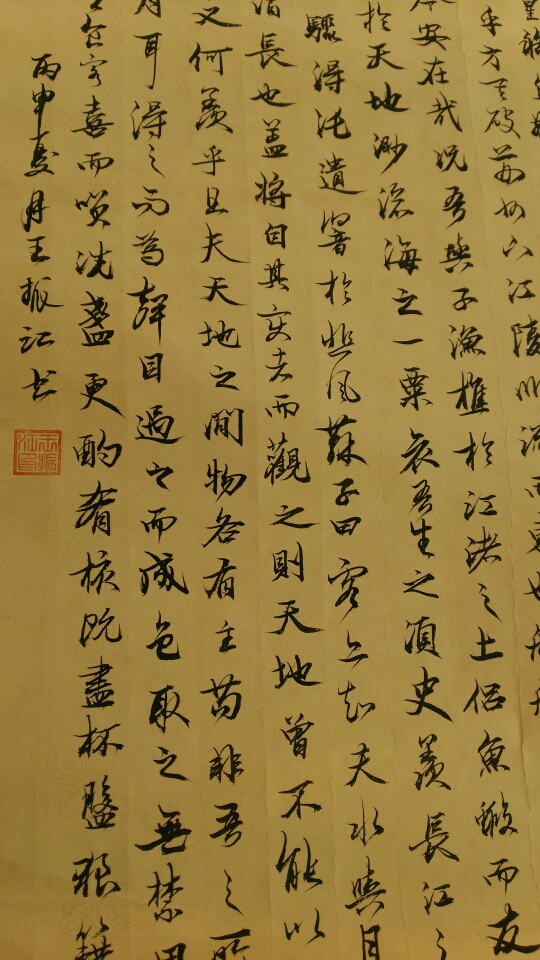 乎方其破荊州下江陵順流而東也舳
今安在哉況吾與子漁樵於江渚之上侶魚蝦而友
於天地渺滄海之一粟哀吾生之須臾羨長江之
驟得託遺響於悲風蘇子曰客亦知夫水與月
消長也盖將自其变者而觀之則天地曾不能以
又何羨乎且夫天地之間物各有主苟非吾之所
月耳得之而為聲目遇之而成色取之無禁用
客喜而笑洗盞更酌肴核既盡杯盤狼籍
丙申夏月王振江书
王振江印